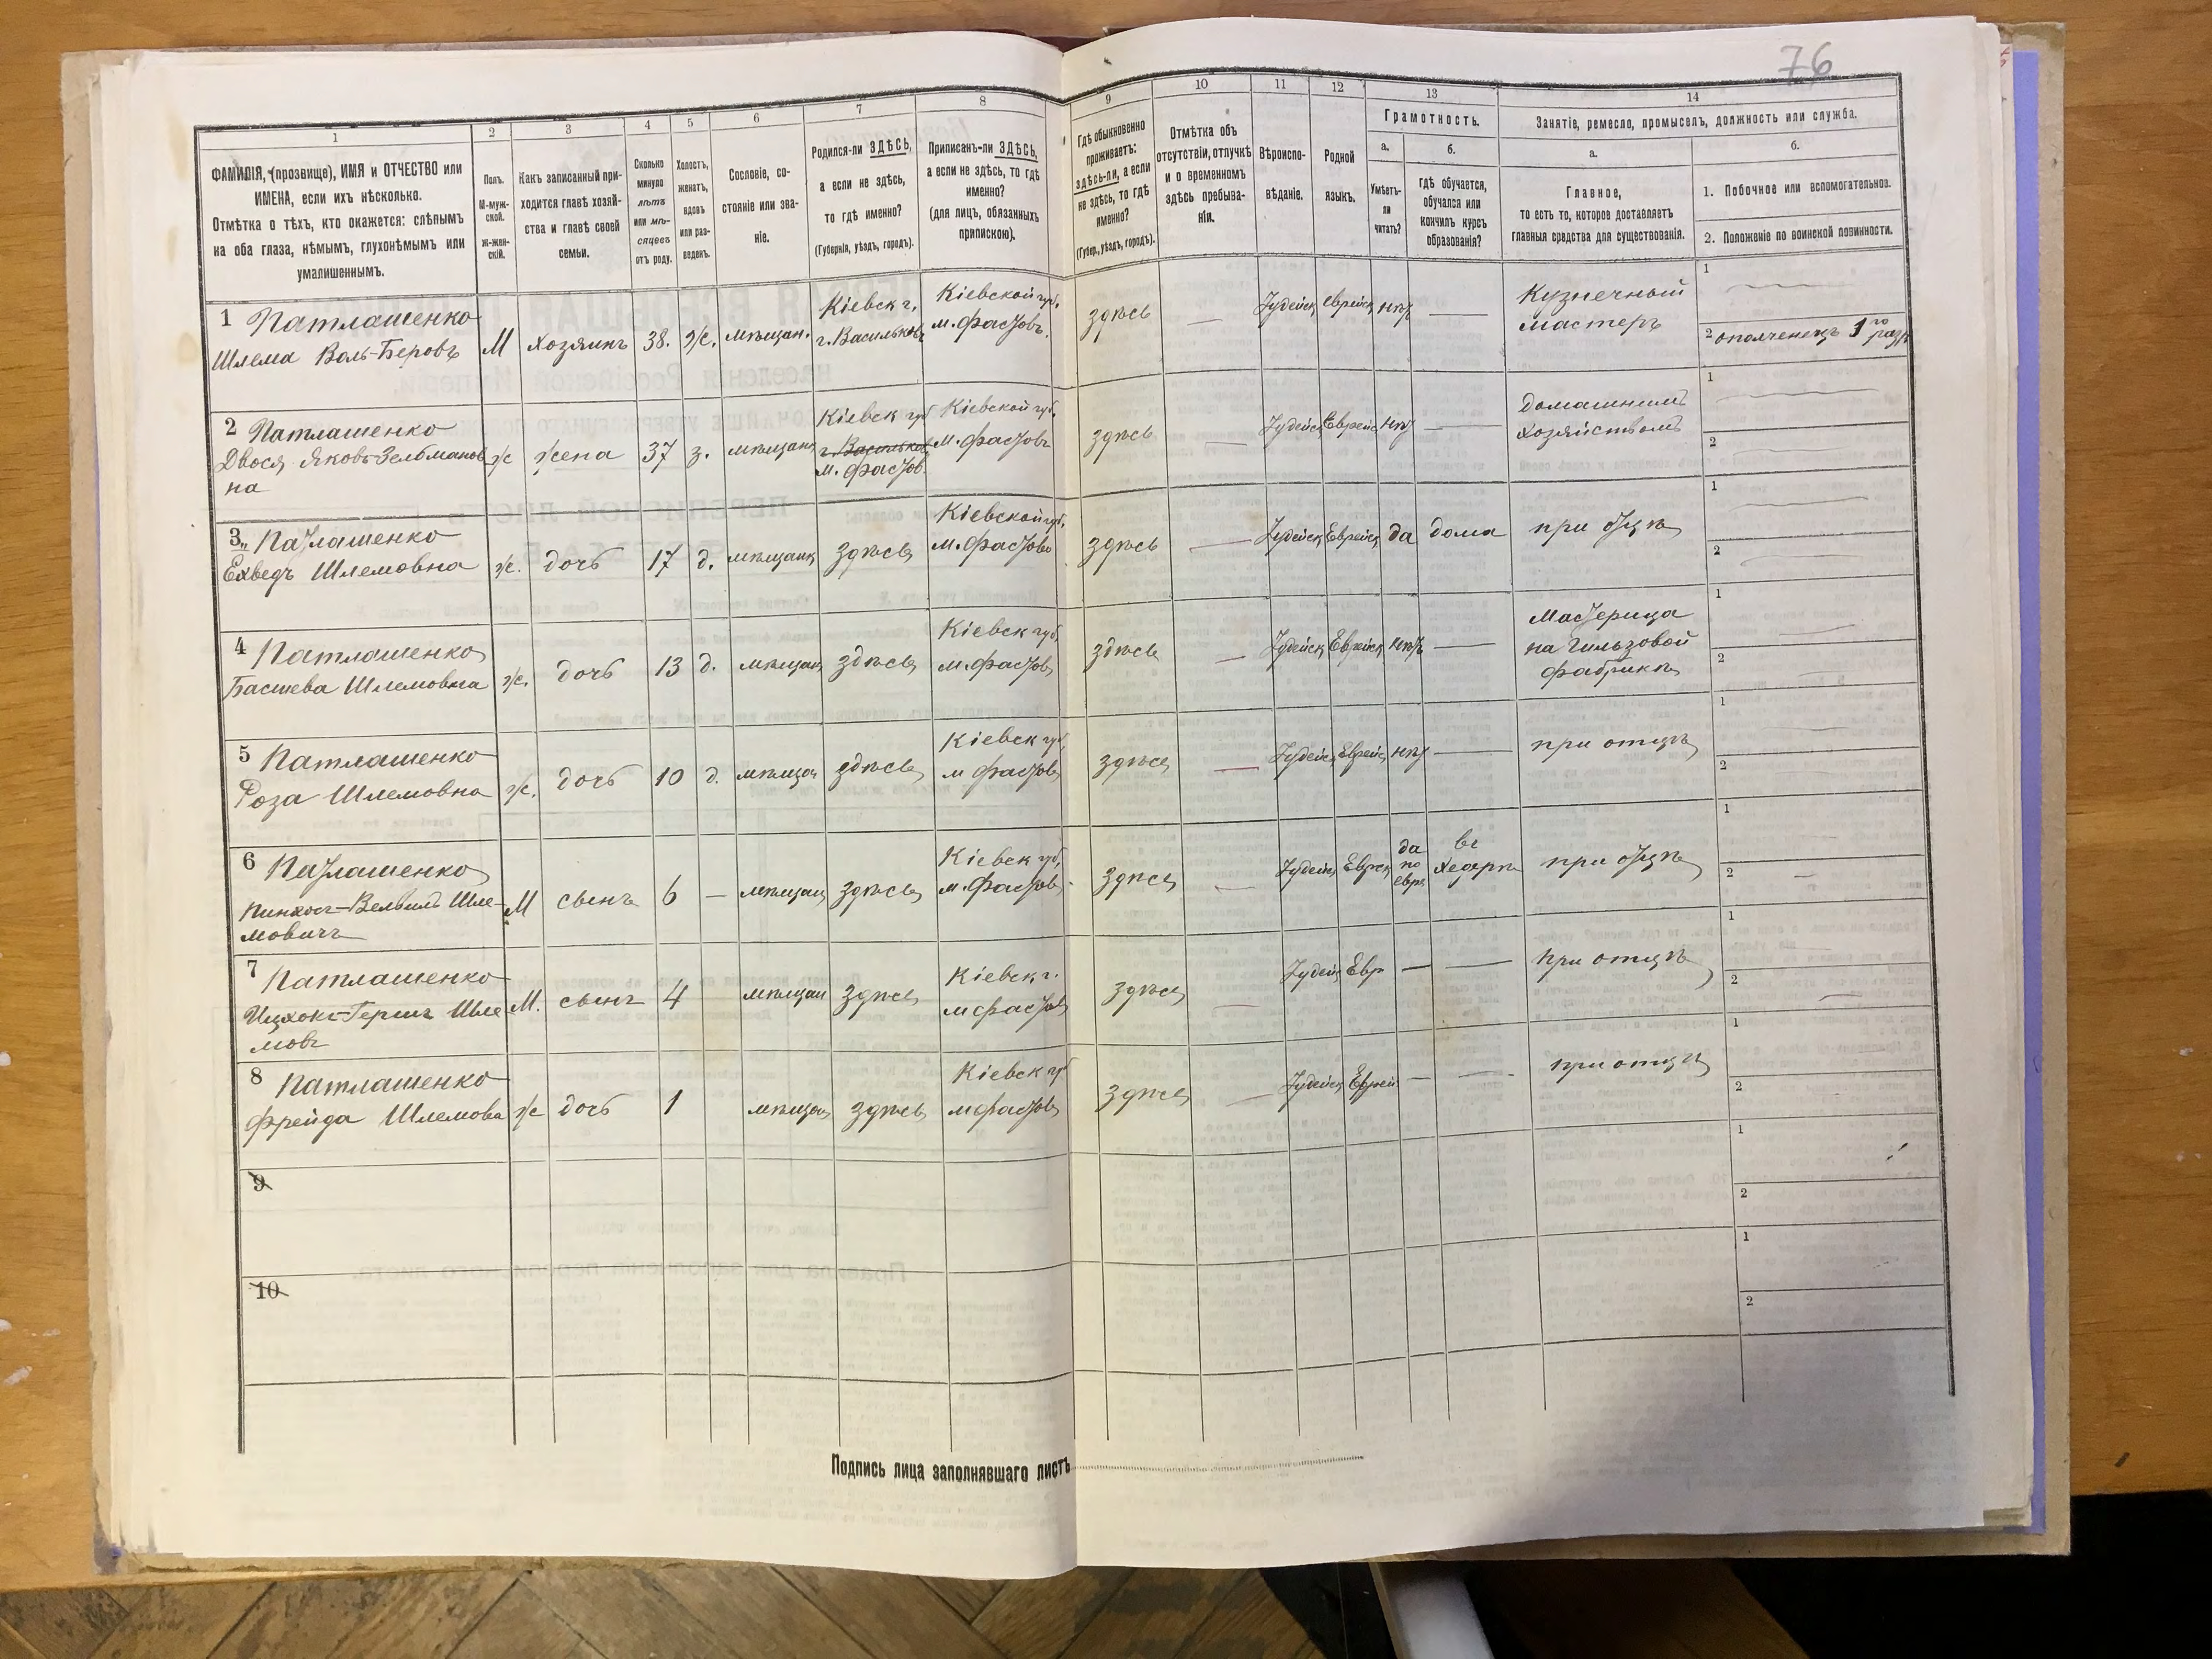 76
1 2 3 4 5 6 7 8 9 10 11 12 13 14
ФАМИЛІЯ, (прозвище), ИМЯ и ОТЧЕСТВО или
ИМЕНА, если ихъ нѣсколько.
Отмѣтка о тѣхъ, кто окажется: слѣпымъ
на оба глаза, нѣмымъ, глухонѣмымъ или
умалишеннымъ.
Полъ.
М-муж-
ской.
ж-жен-
скій.
Какъ записанный при-
ходится главѣ хозяй-
ства и главѣ своей
семьи.
Сколько
минуло
лѣтъ
или мѣ-
сяцевъ
отъ роду.
Холостъ,
женатъ,
вдовъ
или раз-
веденъ.
Сословіе, со-
стояніе или зва-
ніе.
Родился-ли ЗДѢСЬ,
а если не здѣсь,
то гдѣ именно?
(Губернія, уѣздъ, городъ).
Приписанъ-ли ЗДѢСЬ,
а если не здѣсь, то гдѣ
именно?
(для лицъ, обязанныхъ
припискою).
Гдѣ обыкновенно
проживаетъ:
здѣсь-ли, а если
не здѣсь, то гдѣ
именно?
(Губер., уѣздъ, городъ).
Отмѣтка объ
отсутствіи, отлучкѣ
и о временномъ
здѣсь пребыва-
ніи.
Вѣроиспо-
вѣданіе.
Родной
языкъ.
Грамотность.
а.
Умѣетъ-
ли
читать?
б.
гдѣ обучается,
обучался или
кончилъ курсъ
образованія?
Занятіе, ремесло, промыселъ, должность или служба.
а.
Главное,
то есть то, которое доставляетъ
главныя средства для существованія.
б.
1. Побочное или вспомогательное.
2. Положеніе по воинской повинности.
1 Патлашенко
Шлема Воль-Беровъ
М хозяинъ 38. ж. мѣщан.
Кіевск г.
г. Васильковъ
Кіевской губ.
м. Фастовъ.
здѣсь — Іудейск еврейск нѣтъ —
Кузнечный
мастеръ
1
2 ополченецъ 1го разр
2 Патлашенко
Двося Яковъ-Зельманов
на
ж жена 37 з. мѣщанк
Кіевск губ
г. Васильков
м. Фастов
Кіевской губ.
м. Фастовъ
здѣсь — Іудейск Еврейс нѣт —
домашнимъ
хозяйствомъ
1
2
3 Патлашенко
Ехведъ Шлемовна
ж. дочь 17 д. мѣщанк здѣсь
Кіевской губ.
м. Фастовъ
здѣсь — Іудейск Еврейск да дома при отцѣ
1
2
4 Патлашенко
Басшева Шлемовна
ж. дочь 13 д. мѣщан здѣсь
Кіевск губ.
м. Фастовъ
здѣсь — Іудейск Еврейск нѣтъ —
Мастерица
на Гильзовой
фабрикѣ
1
2
5 Патлашенко
Роза Шлемовна
ж. дочь 10 д. мѣщан здѣсь
Кіевск губ,
м Фастовъ
здѣсь — Іудейс Еврейс нѣт — при отцѣ
1
2
6 Патлашенко
Пинхос-Вельвиль Шле-
мовичъ
М сынъ 6 — мѣщан здѣсь
Кіевск губ,
м. Фастовъ
здѣсь — Іудейск Еврей
да
по
евр.
въ
Хедерѣ
при отцѣ
1
2 —
7 Патлашенко
Ицхокъ-Гершъ Шле
мовъ
М. сынъ 4 мѣщан здѣсь
Кіевск г.
м Фастов
здѣсь — Іудейс Евр — — при отцѣ
1
2
8 Патлашенко
Фрейда Шлемова
ж дочь 1 мѣщан здѣсь
Кіевск гу
м Фастовъ
здѣсь — Іудейск Еврей — — при отцѣ
1
2
9
1
2
10
1
2
Подпись лица заполнявшаго листъ